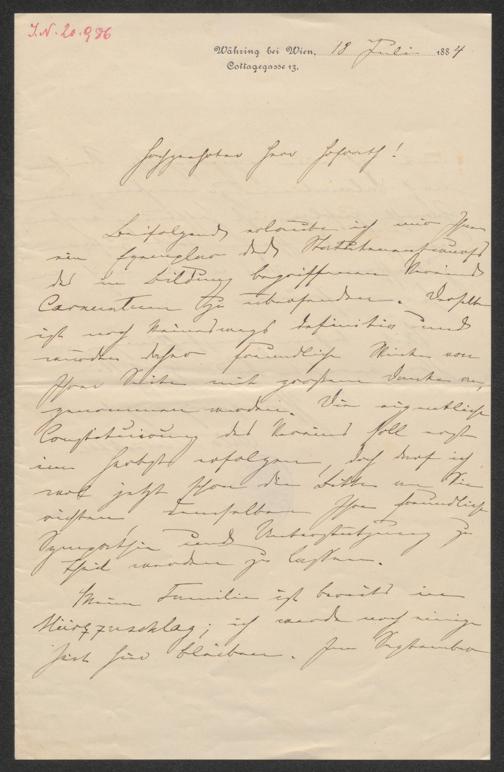 I.N. 20.986
Währing bei Wien, 18 Juli 1884
Cottagegasse 13.
Hochgeehrter Herr Hofrath!
Beifolgend erlaube ich mir Ihnen
ein Exemplar des Statutenentwurfs
des in Bildung begriffenen Vereins
Carnuntum zu übersenden. Derselbe
ist noch keineswegs definitiv und
würden daher freundliche Winke von
Ihrer Seite mit großem Danke an-
genommen werden. Die eigentliche
Constituirung des Vereins soll erst
im Herbste erfolgen, doch darf ich
wol jetzt schon die Bitte an Sie
richten, demselben Ihre freundliche
Sympathie und Unterstützung zu
Theil werden zu lassen.
Meine Familie ist bereits in
Mürzzuschlag; ich werde noch einige
Zeit hier bleiben. Im September